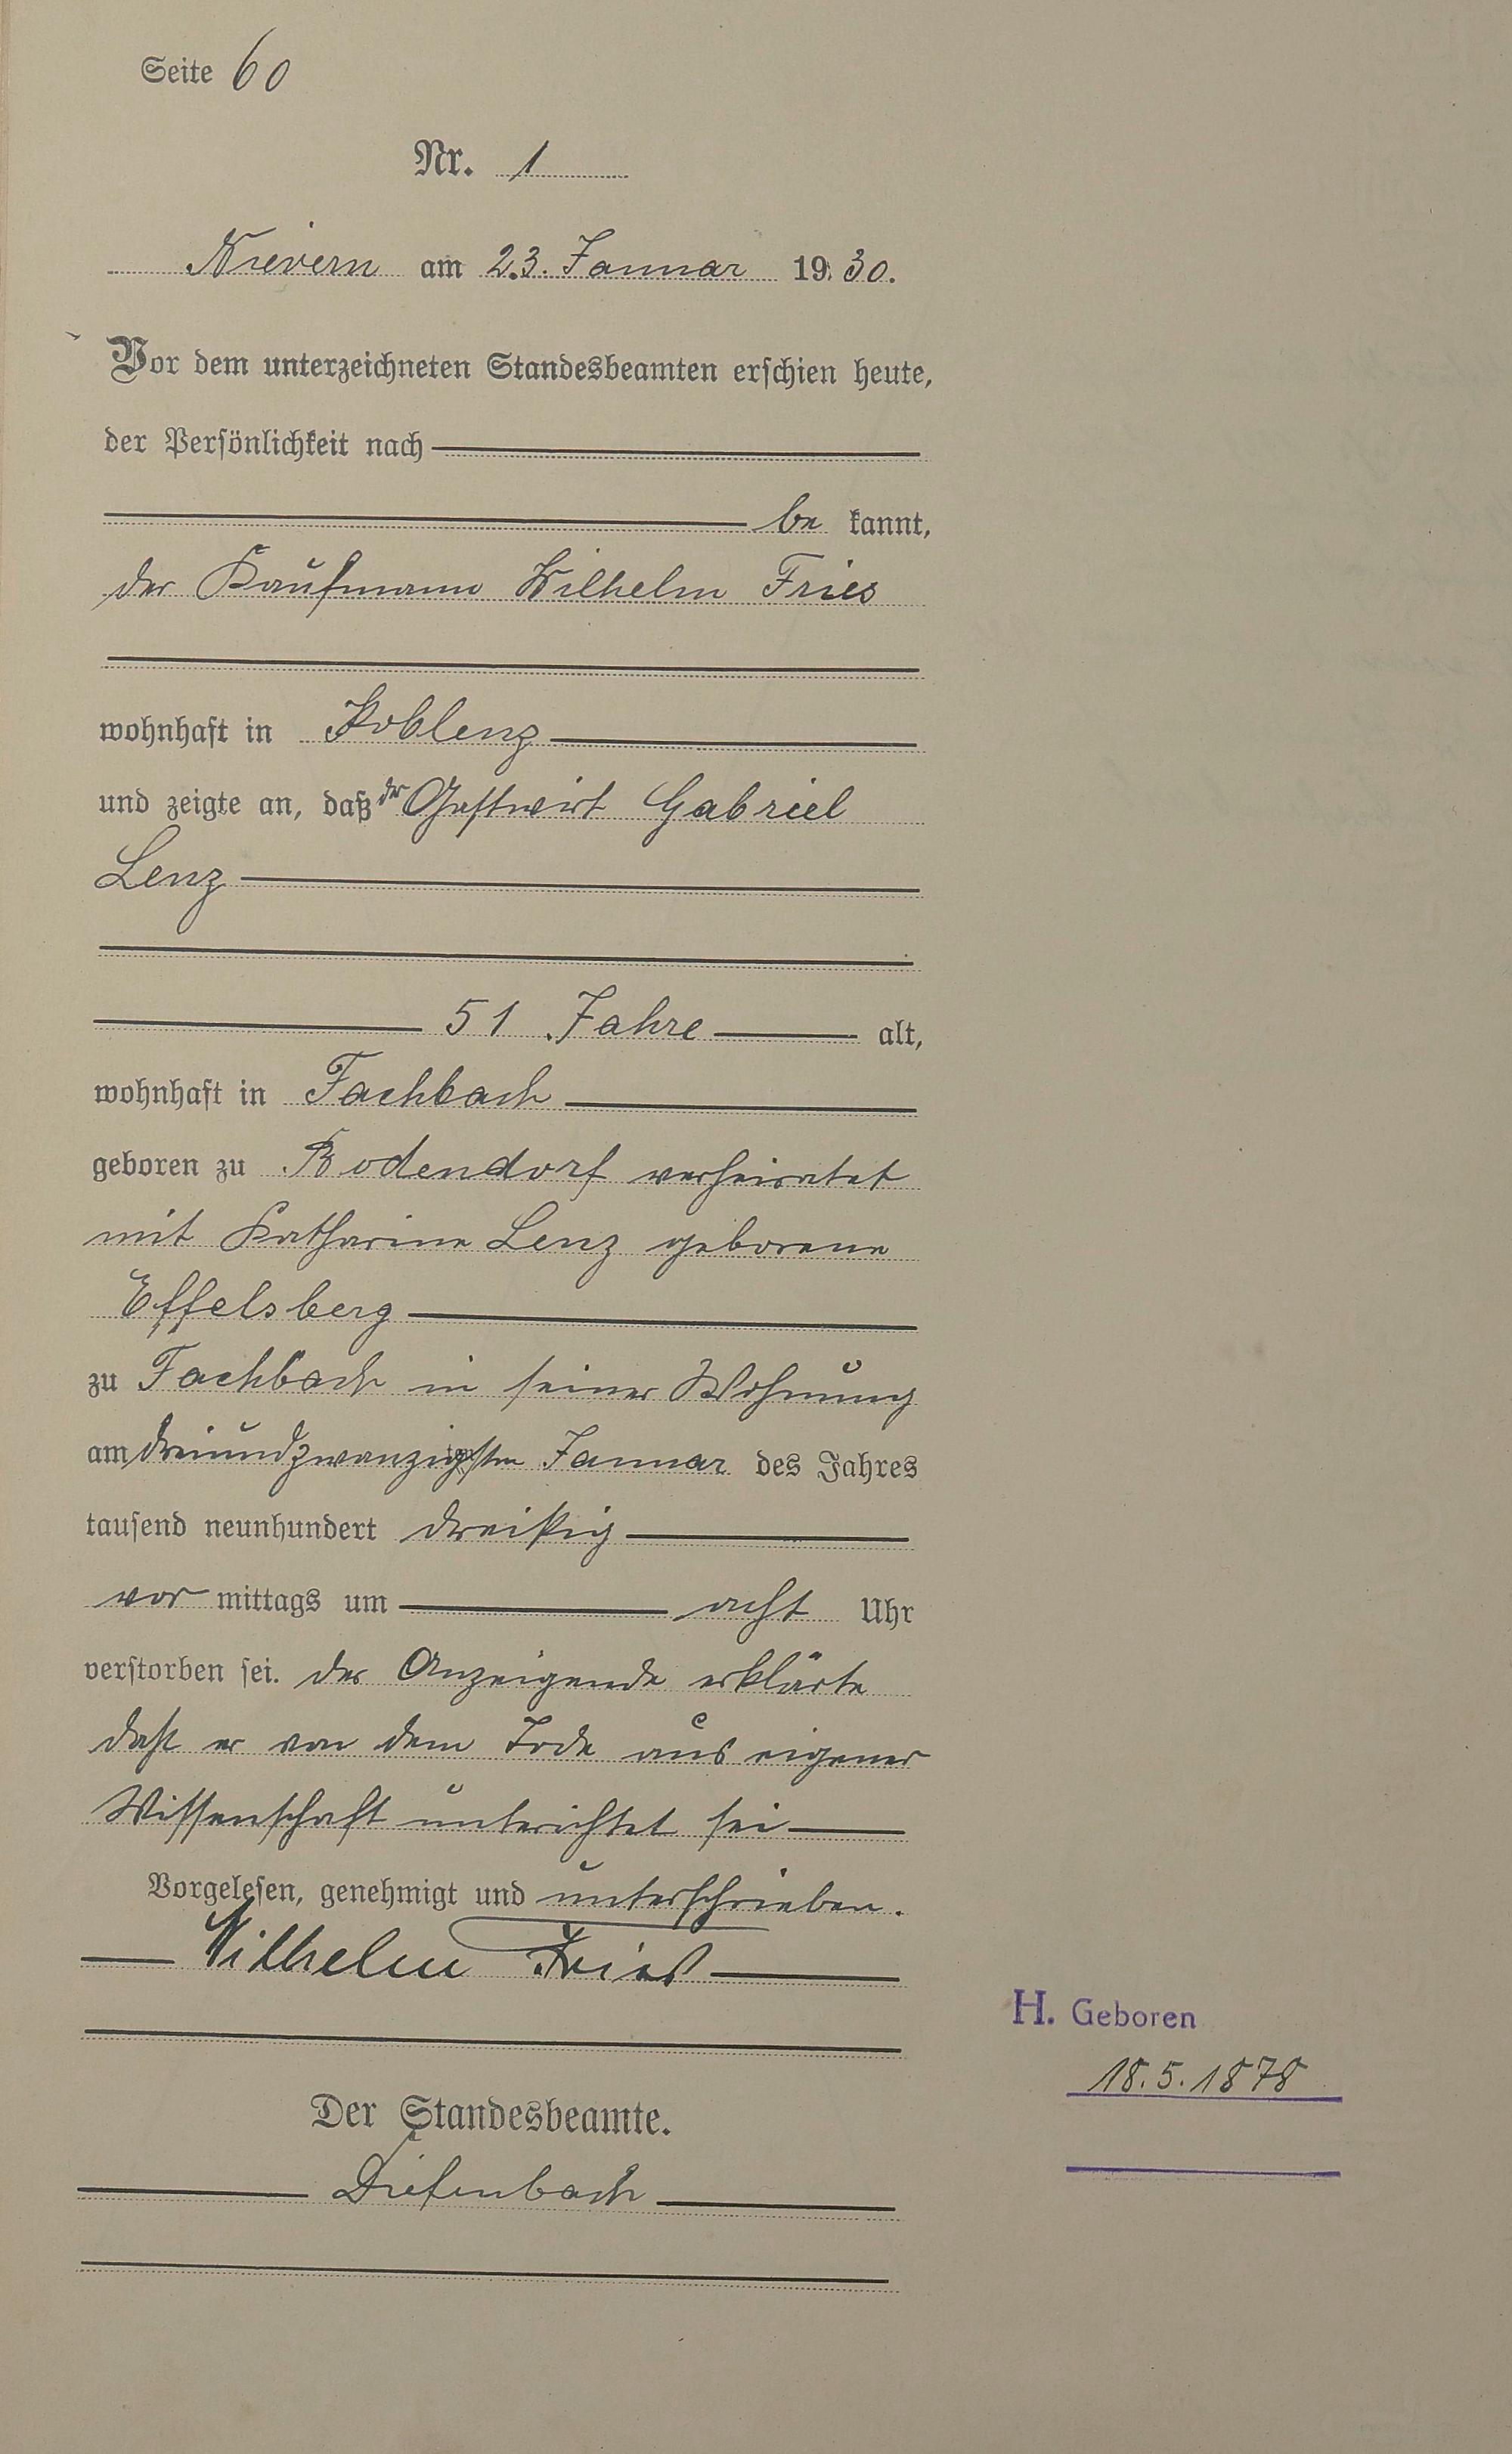 Seite 60
Nr. 1
Nievern am 23. Januar 1930.
Vor dem unterzeichneten Standesbeamten erschien heute,
der Persönlichkeit nach
be kannt,
der Kaufmann Wilhelm Fries
wohnhaft in Koblenz
und zeigte an, daß der Gastwirt Gabriel
Lenz
51 Jahre alt,
wohnhaft in Fachbach
geboren zu Bodendorf verheiratet
mit Katharina Lenz geborene
Effelsberg
zu Fachbach in seiner Wohnung
am dreiundzwanzigsten Januar des Jahres
tausend neunhundert dreißig
vor mittags um acht Uhr
verstorben sei. der Anzeigende erklärte
daß er von dem Tode aus eigener
Wissenschaft unterichtet sei
Vorgelesen, genehmigt und unterschrieben.
Wilhelm Fries
H. Geboren
18.5.1878
Der Standesbeamte.
Diefenbach